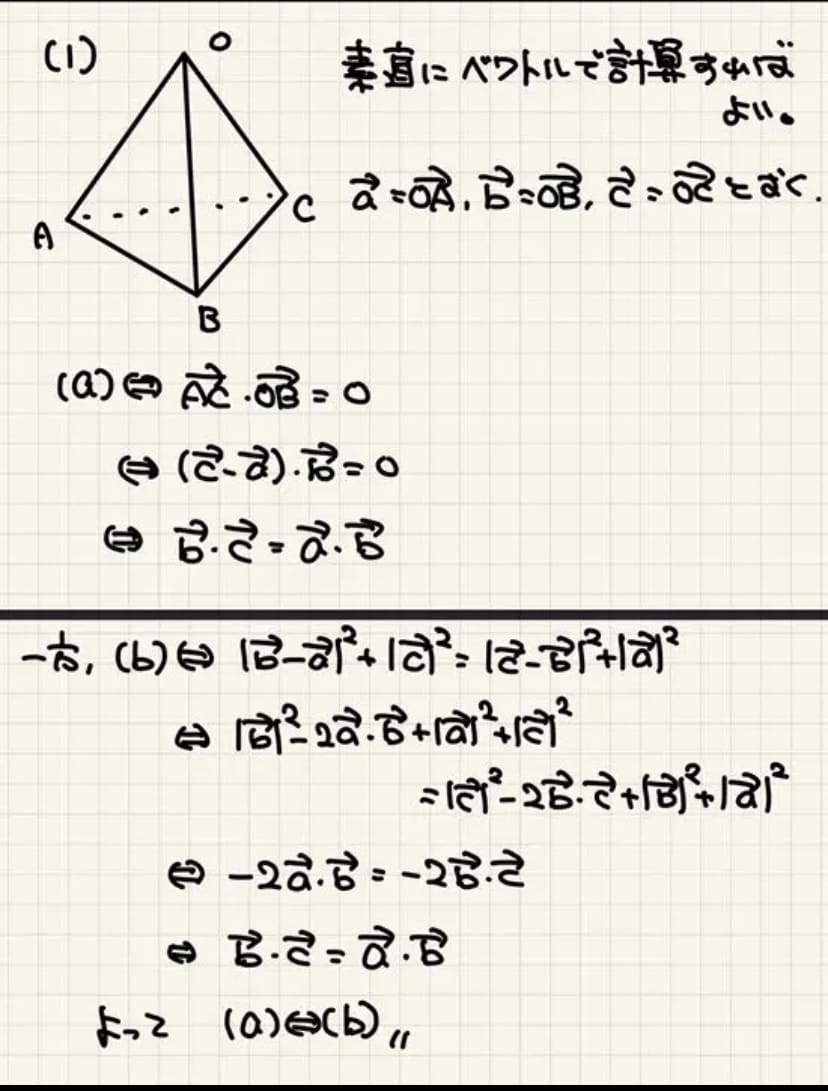 (1)
O
A
B
C
素直にベクトルで計算すれば
よい。
a⃗=OA⃗, b⃗=OB⃗, c⃗=OC⃗ とおく.
(a)⇔ AC⃗・OB⃗=0
⇔ (c⃗-a⃗)・b⃗=0
⇔ b⃗・c⃗=a⃗・b⃗
一方, (b)⇔ |b⃗-a⃗|²+|c⃗|²=|c⃗-b⃗|²+|a⃗|²
⇔ |b⃗|²-2a⃗・b⃗+|a⃗|²+|c⃗|²
=|c⃗|²-2b⃗・c⃗+|b⃗|²+|a⃗|²
⇔ -2a⃗・b⃗=-2b⃗・c⃗
⇔ b⃗・c⃗=a⃗・b⃗
よって (a)⇔(b)〃